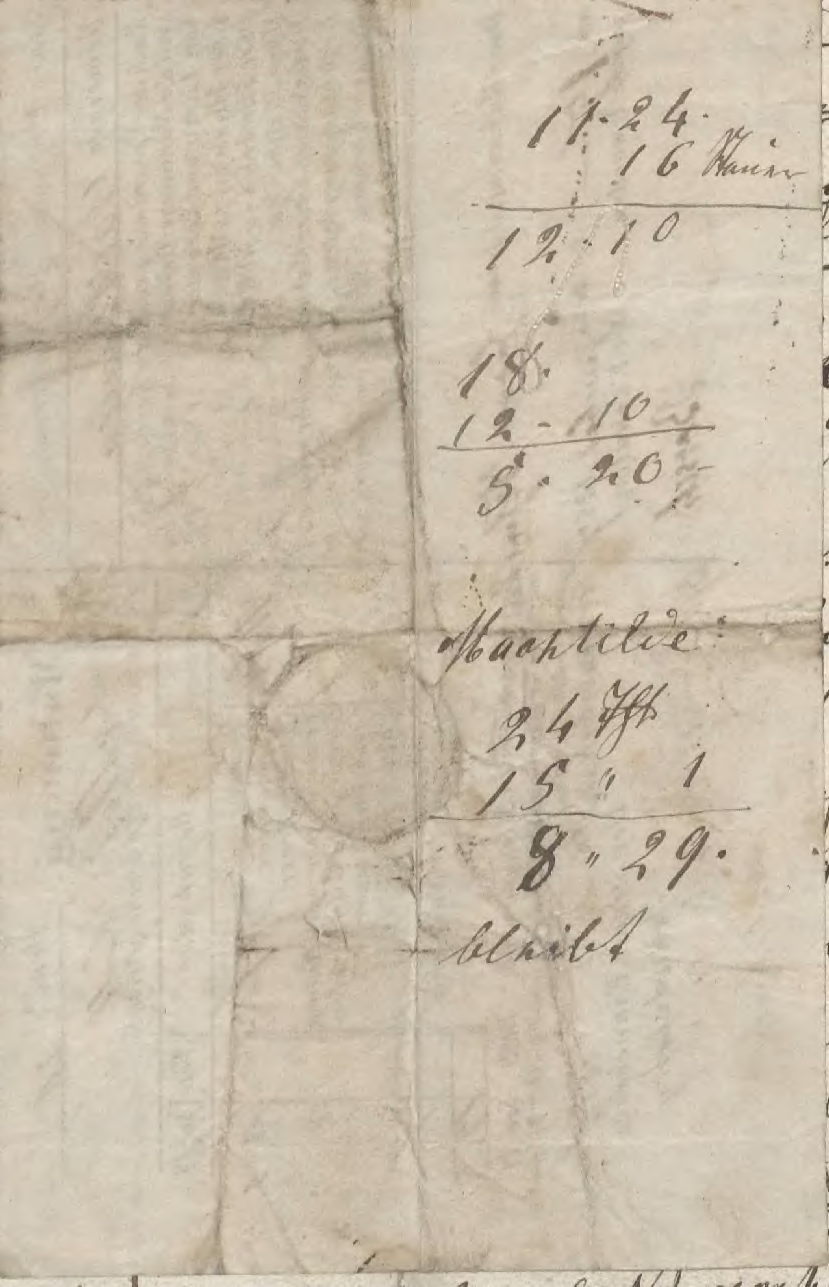 11. 24.
16
12. 10
18.
12 - 10
5. 20
Machtilde:
24
15 " 1
8 " 29.
bleibt